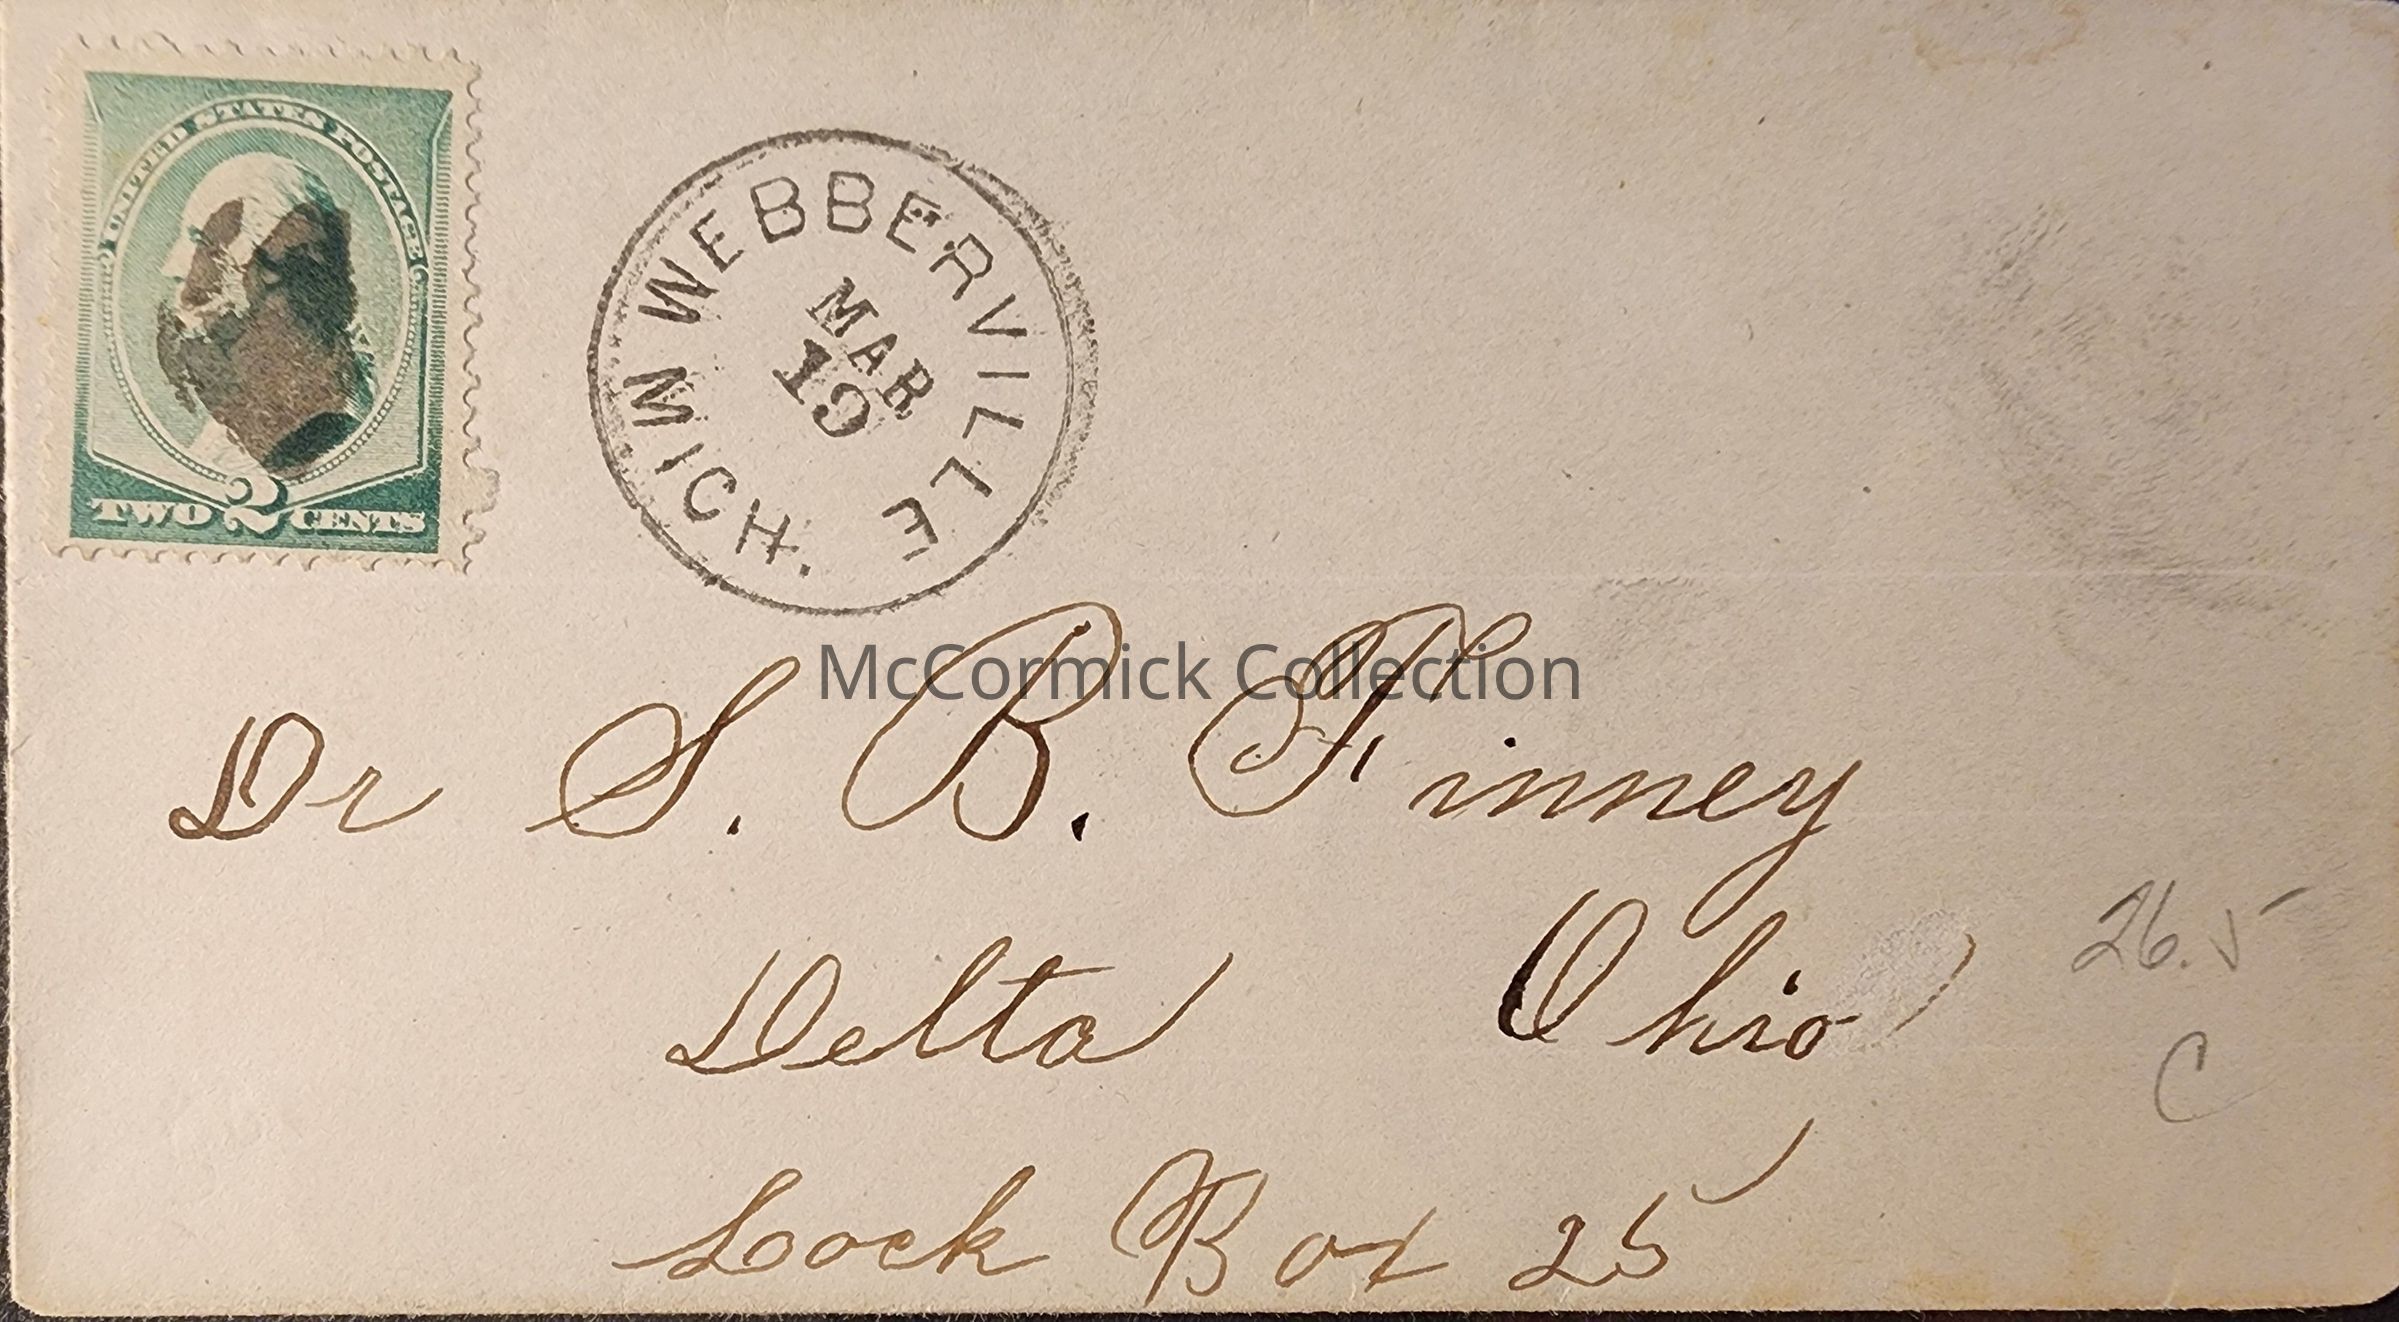 UNITED STATES POSTAGE
TWO 2 CENTS
WEBBERVILLE
MICH.
MAR
19
McCormick Collection
Dr S. B. Finney
Delta Ohio
26.5
C
Lock Box 25